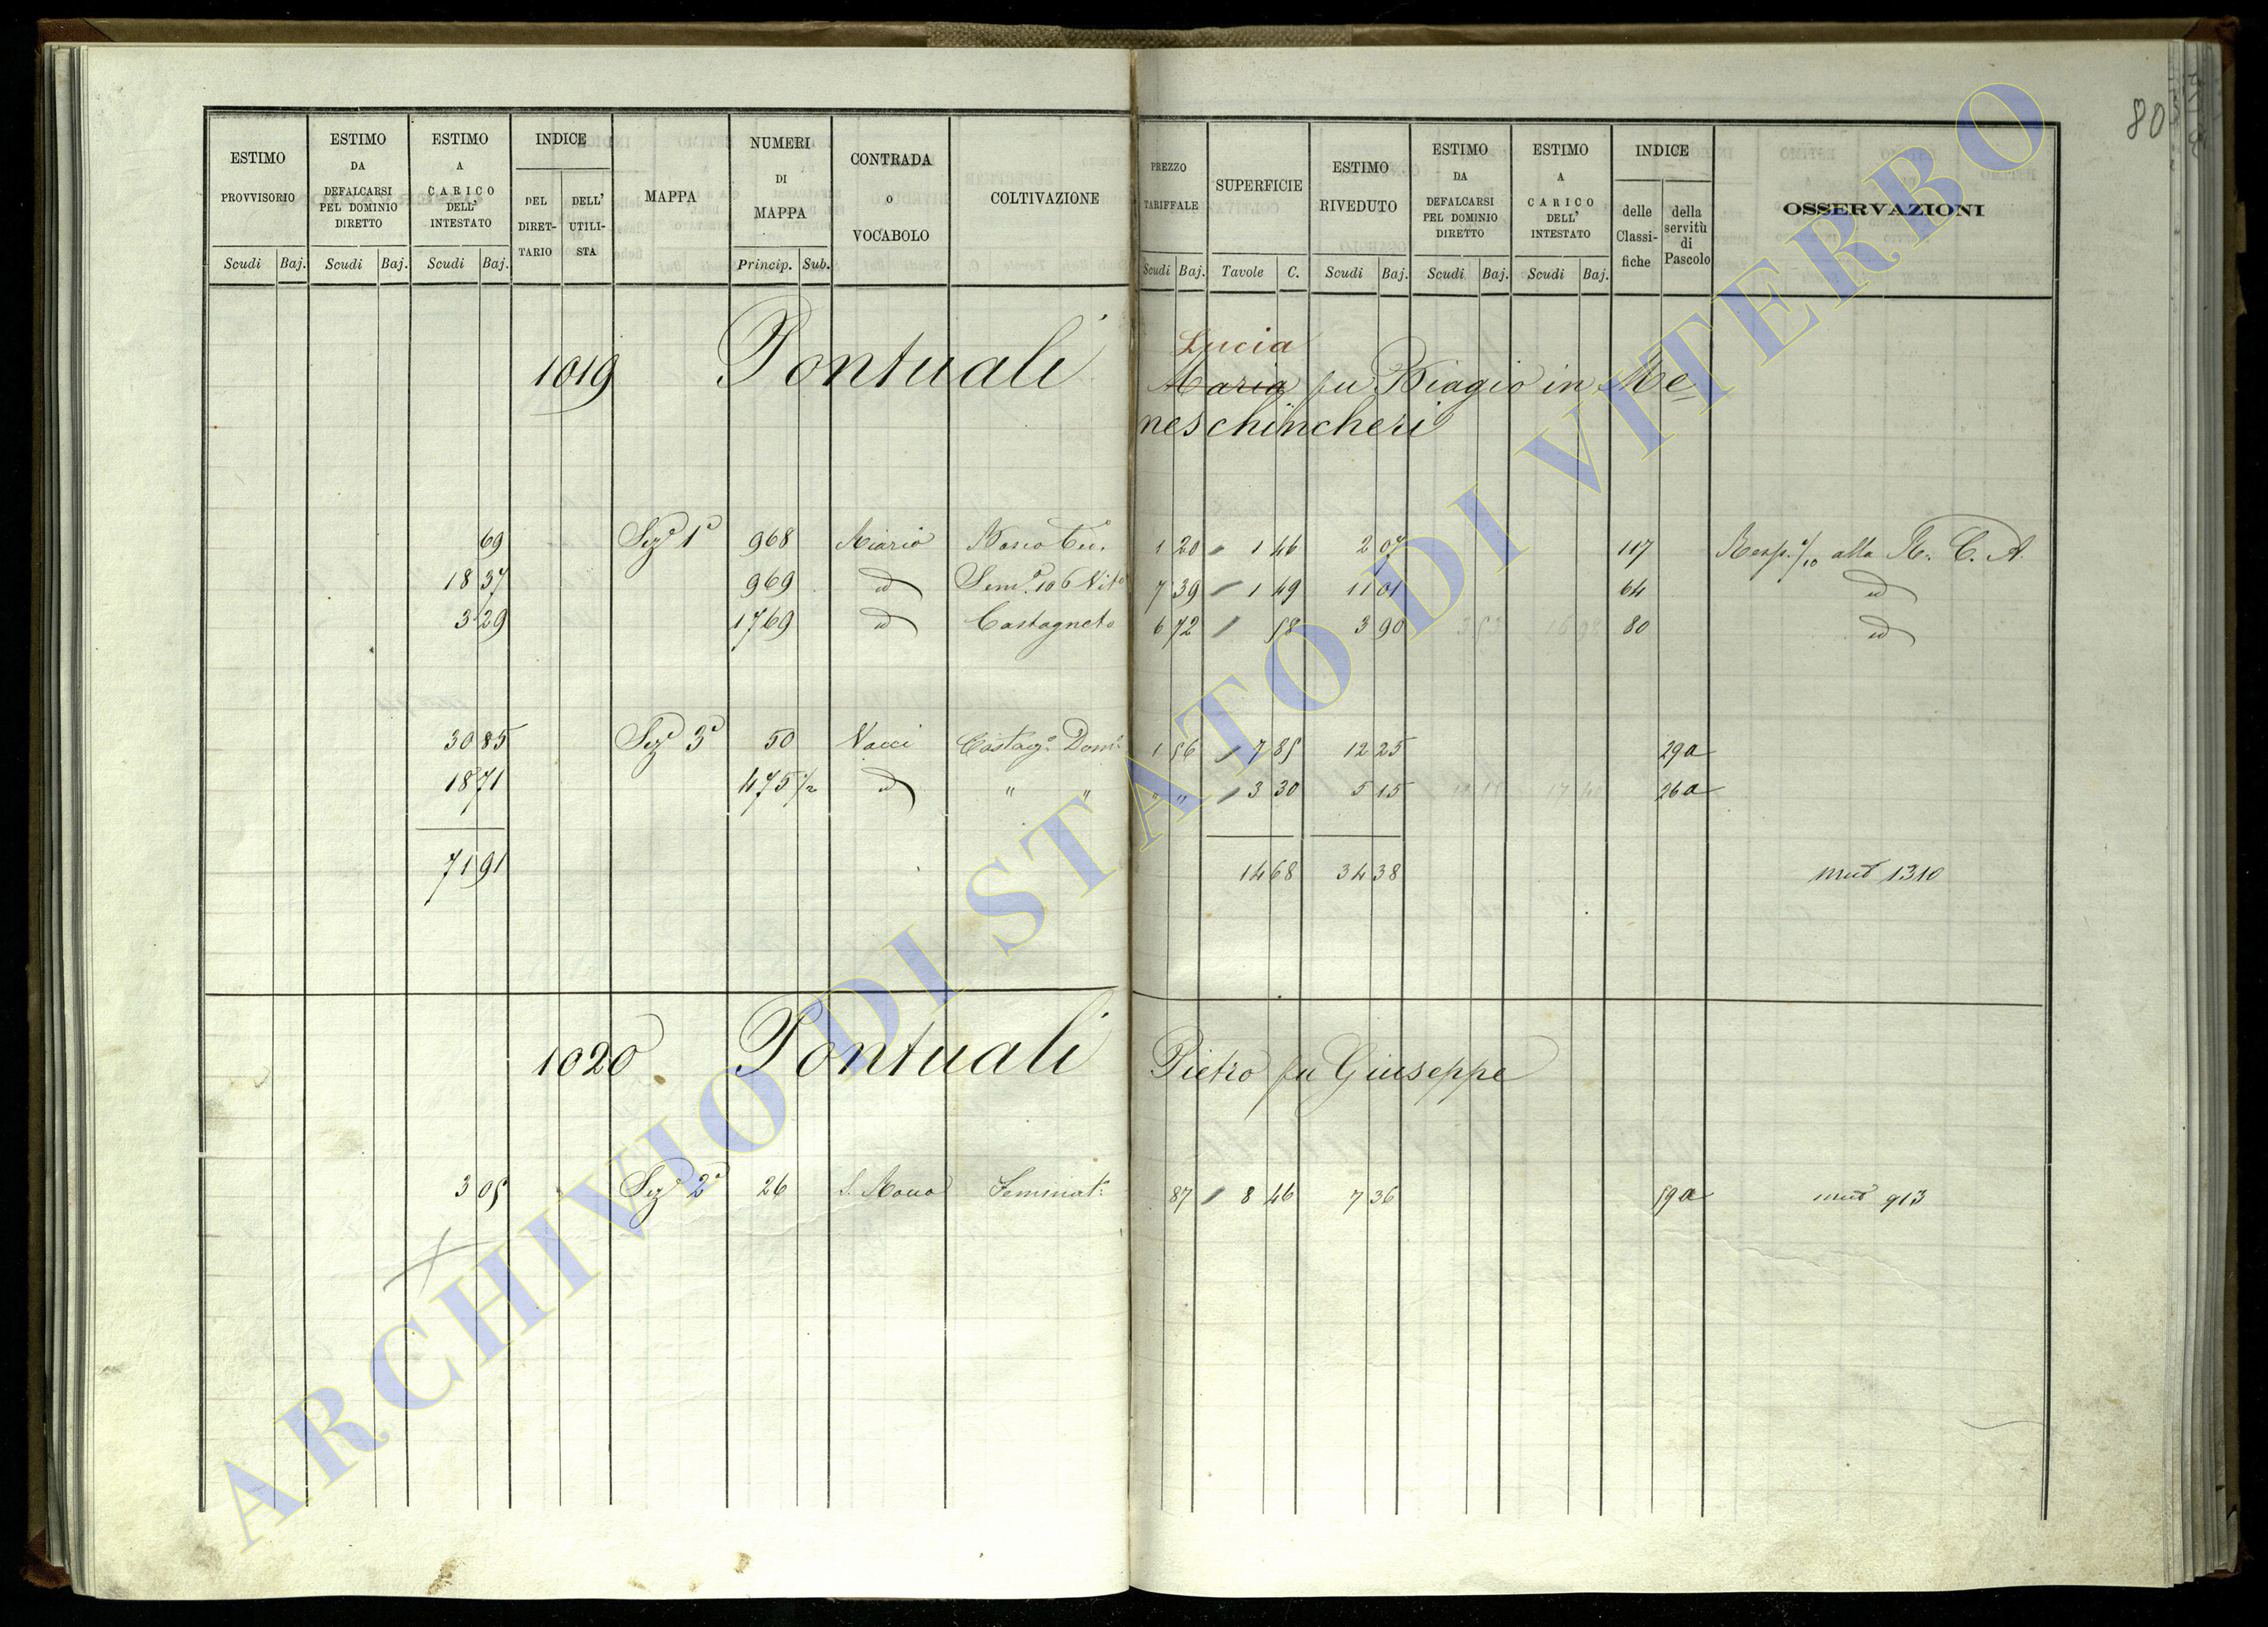 80
ESTIMO PROVVISORIO
ESTIMO DA DEFALCARSI PEL DOMINIO DIRETTO
ESTIMO A CARICO DELL' INTESTATO
INDICE
DEL DIRET-TARIO
DELL' UTILI-STA
MAPPA
NUMERI DI MAPPA
CONTRADA O VOCABOLO
COLTIVAZIONE
PREZZO TARIFFALE
SUPERFICIE
ESTIMO RIVEDUTO
ESTIMO DA DEFALCARSI PEL DOMINIO DIRETTO
ESTIMO A CARICO DELL' INTESTATO
INDICE
delle Classi-fiche
della servitù di Pascolo
OSSERVAZIONI
Scudi Baj. Scudi Baj. Scudi Baj. Princip. Sub. Scudi Baj. Tavole C. Scudi Baj. Scudi Baj. Scudi Baj.
Lucia
1019 Pontuali Maria fu Biagio in Me
neschincheri
69 Sezᵉ 1ª 968 Riario Bosco Ced. 1 20 1 46 2 07 117 Resp. alla R. C. A.
18 37 969 id Semᵒ 106 Vitᵒ 7 39 1 49 11 01 64 id
3 29 1769 id Castagneto 6 72 58 3 90 80 id
30 85 Sezᵉ 3ª 50 Vacci Castagᵒ Domᵒ 1 56 7 85 12 25 29a
18 71 475 1/2 id " " " " 3 30 5 15 26a
71 91 14 68 34 38 mut 1310
1020 Pontuali Pietro fu Giuseppe
3 05 Sezᵉ 2ª 26 S. Rocco Seminatᵒ 87 8 46 7 36 59a mut 913
ARCHIVIO DI STATO DI VITERBO